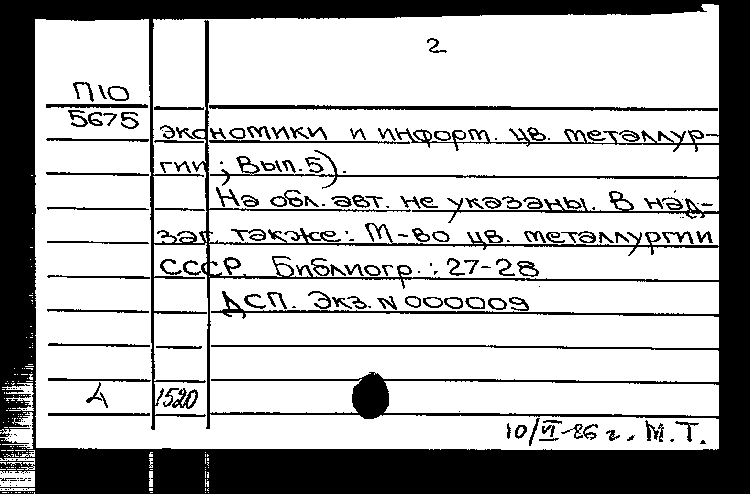 2
П10
5675
экономики и информ. цв. металлур-
гии ; Вып. 5).
На обл. авт. не указаны. В над-
заг. также: М-во цв. металлургии
СССР. Библиогр.: 27-28
ДСП. Экз. N 000009
1520
10/VI-86 г. М.Т.